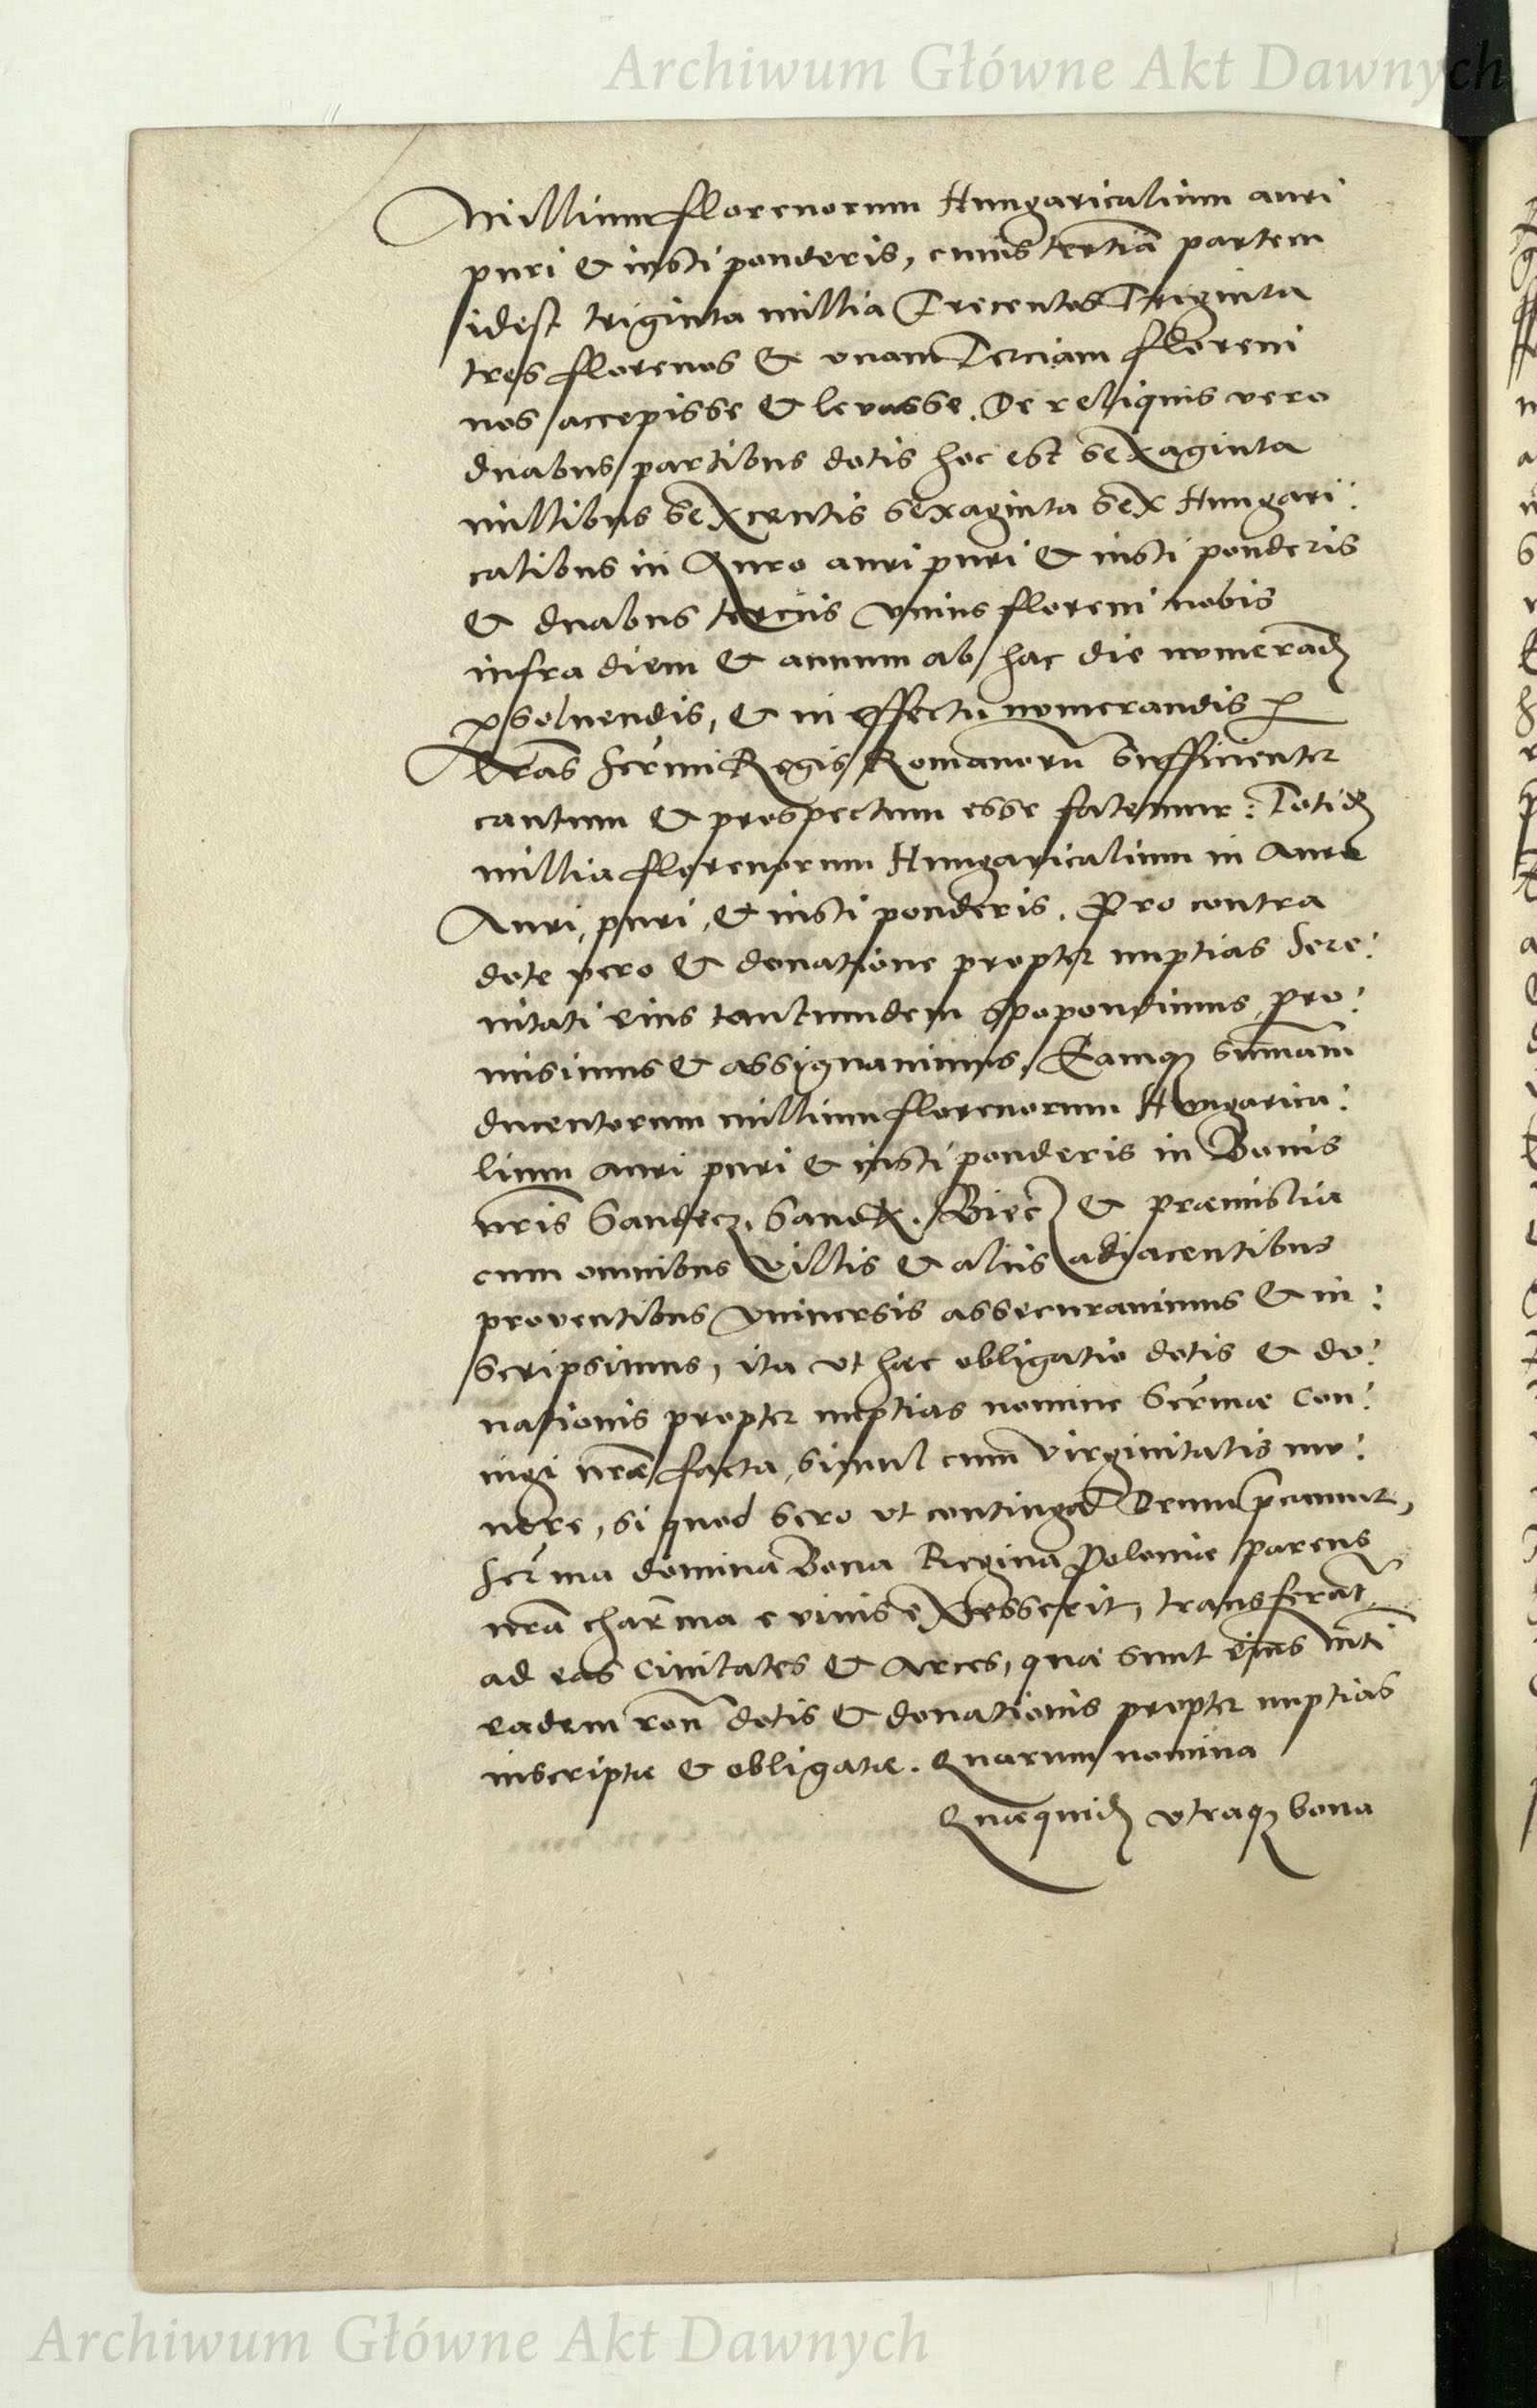 Archiwum Główne Akt Dawnych
Millium florenorum Hungaricalium auri
puri & iusti ponderis, cuius tertiã partem
idest triginta millia Trecentos Triginta
tres florenos & vnam Terciam floreni
nos accepisse & levasse. De reliquis vero
duabus partibus dotis hoc est sexaginta
millibus sexcentis sexaginta sex Hungari:
calibus in Auro auri puri & iusti ponderis
& duabus terciis vnius floreni nobis
infra diem & annum ab hac die numerand
psoluendis, & in effectu numerandis p
lr̃as Serm̃i Regis Romanorũ sufficienter
cautum & prospectum esse fatemur: Totid
millia florenorum Hungaricalium in Auro
Auri, puri, & iusti ponderis. Pro contra
dote vero & donatione propter nuptias Sere:
nitati eius tantumdem spopondimus, pro:
misimus & assignauimus, Eamqʒ sum̃am
ducentorum millium florenorum Hungarica:
lium auri puri & iusti ponderis in Bonis
nr̃is Sandecz, Sanok, Biecz & præmislia
cum omnibus villis & aliis adiacentibus
proventibus vniuersis assecurauimus & in:
scripsimus, ita vt hæc obligatio dotis & do:
nationis propter nuptias nomine Serm̃æ Con:
iugi nr̃æ facta, simul cum virginitatis mu:
nere, si quod sero vt contingat Deum p̃camur,
Serm̃a domina Bona Regina Poloniæ parens
nr̃a char̃ma e viuis excesserit, transferat̃
ad eas Ciuitates & Arces, quæ sunt eius m̃ti
eadem rõn dotis & donationis propter nuptias
inscriptæ & obligatæ. Quarum nomina
Quæquid vtraqʒ bona
Archiwum Główne Akt Dawnych